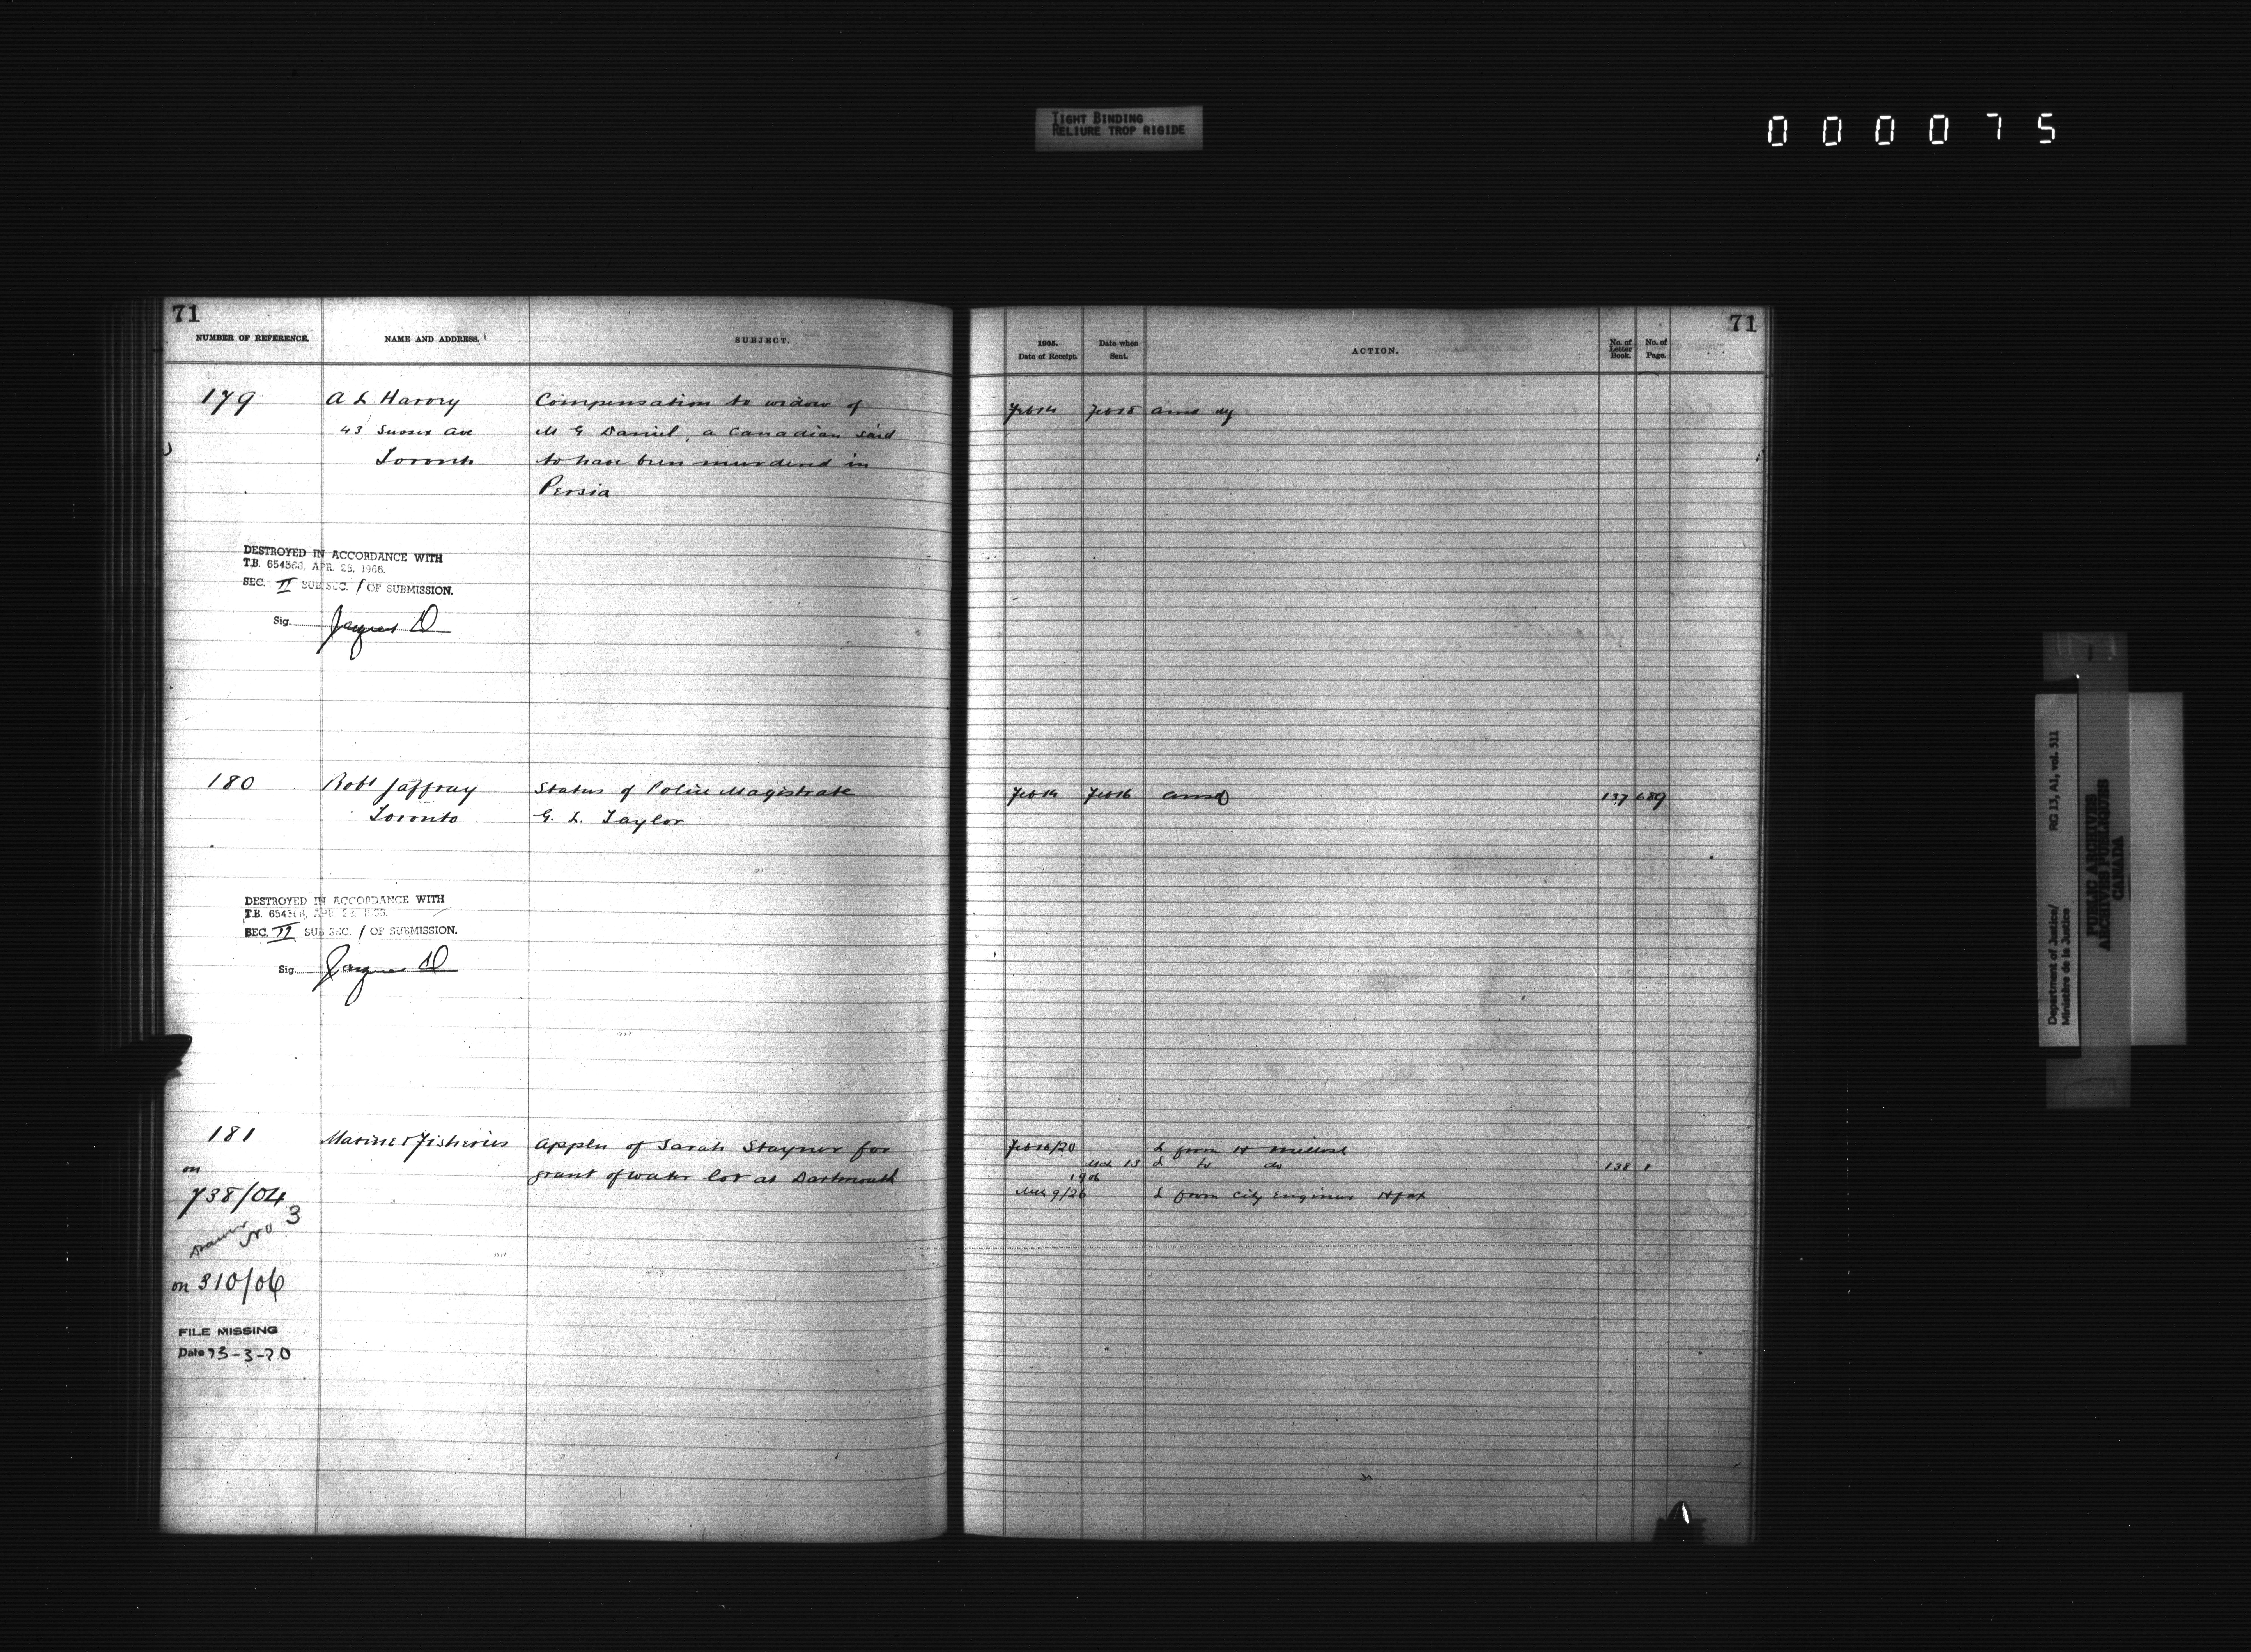 TIGHT BINDING
RELIURE TROP RIGIDE
000075
71
NUMBER OF REFERENCE.
NAME AND ADDRESS.
SUBJECT.
179
A L Harvey
Compensation to widow of
43 Sussex Ave
M G Daniel, a Canadian said
Toronto
to have been murdered in
Persia
DESTROYED IN ACCORDANCE WITH
T.B. 654366, APR. 28, 1966.
SEC. II SUB SEC. 1 OF SUBMISSION.
Sig. Jacques D
180
Robt Jaffray
Status of Police Magistrate
Toronto
G. L. Taylor
DESTROYED IN ACCORDANCE WITH
T.B. 654366, APR.
SEC. II SUB SEC. 1 OF SUBMISSION.
Sig. Jacques D
181
Marine & Fisheries
Appln of Sarah Stayner for
on
grant of water lot at Dartmouth
738/04
Drawer No 3
on 310/06
FILE MISSING
Date 13-3-70
71
1905.
Date of Receipt.
Date when
Sent.
ACTION.
No. of
Letter
Book.
No. of
Page.
Feb 14
Feb 15
Feb 14
Feb 16
ansd
137
689
Feb 16/20
L from H
Mch 13
L to do
138
1
1906
9/26
L from City Engineer Hfax
Department of Justice/
Ministère de la Justice
RG 13, A1, vol. 511
PUBLIC ARCHIVES
ARCHIVES PUBLIQUES
CANADA